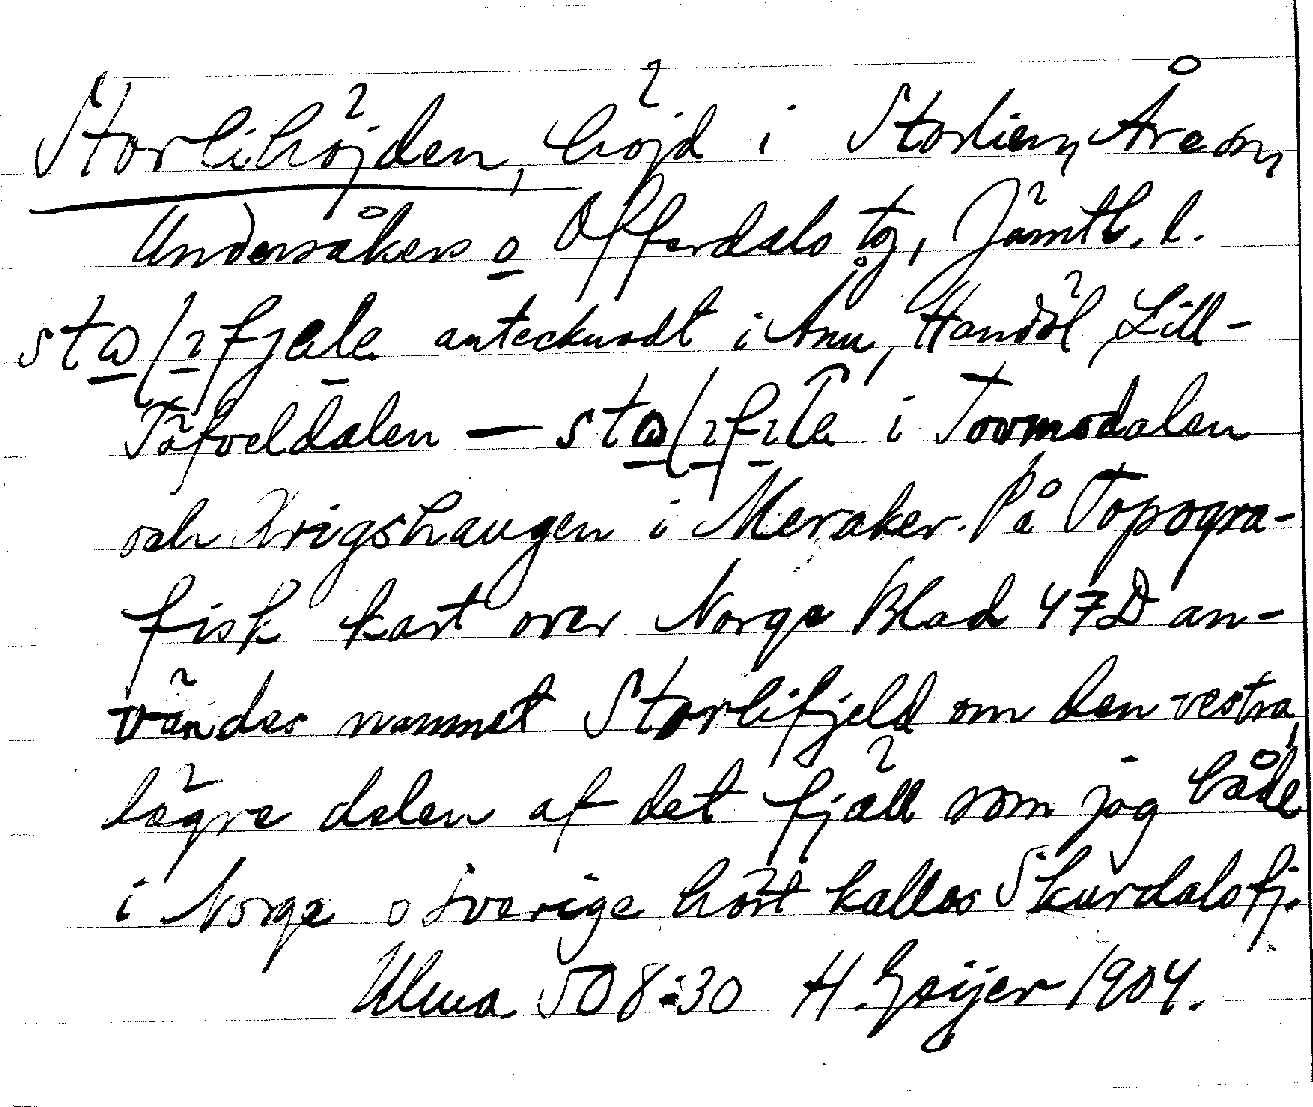 Storlihöjden, höjd i Storlien, Åre sn,
Undersåkers o Offerdals tg, Jämtl. l.
antecknadt i Ånn, Handöl, Lill-
Täfveldalen — i Tovmodalen
och Krigshaugen i Meraker. På Topogra-
fisk kart over Norge Blad 47D an-
vändes namnet Storlifjeld om den vestra,
lägre delen af det fjäll som jag både
i Norge o Sverige hört kallas Skurdalsfj.
Ulma 508:30 H. Geijer 1904.